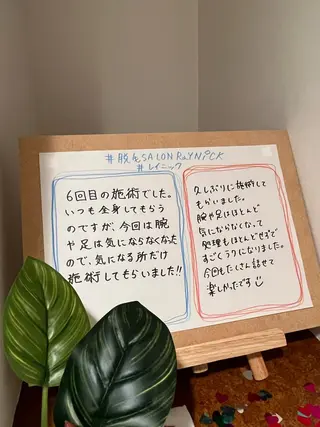 #脱毛SALON RAYNiCK
#レイニック
6回目の施術でした。
いつも全身してもらう
のですが、今回は腕
や足は気にならなくなった
ので、気になる所だけ
施術してもらいました!!
久しぶりに施術して
もらいました。
腕や足はほとんど
気にならなくなって
処理もほとんどせずで
すごくラクになりました。
今回もたくさん話せて
楽しかったです